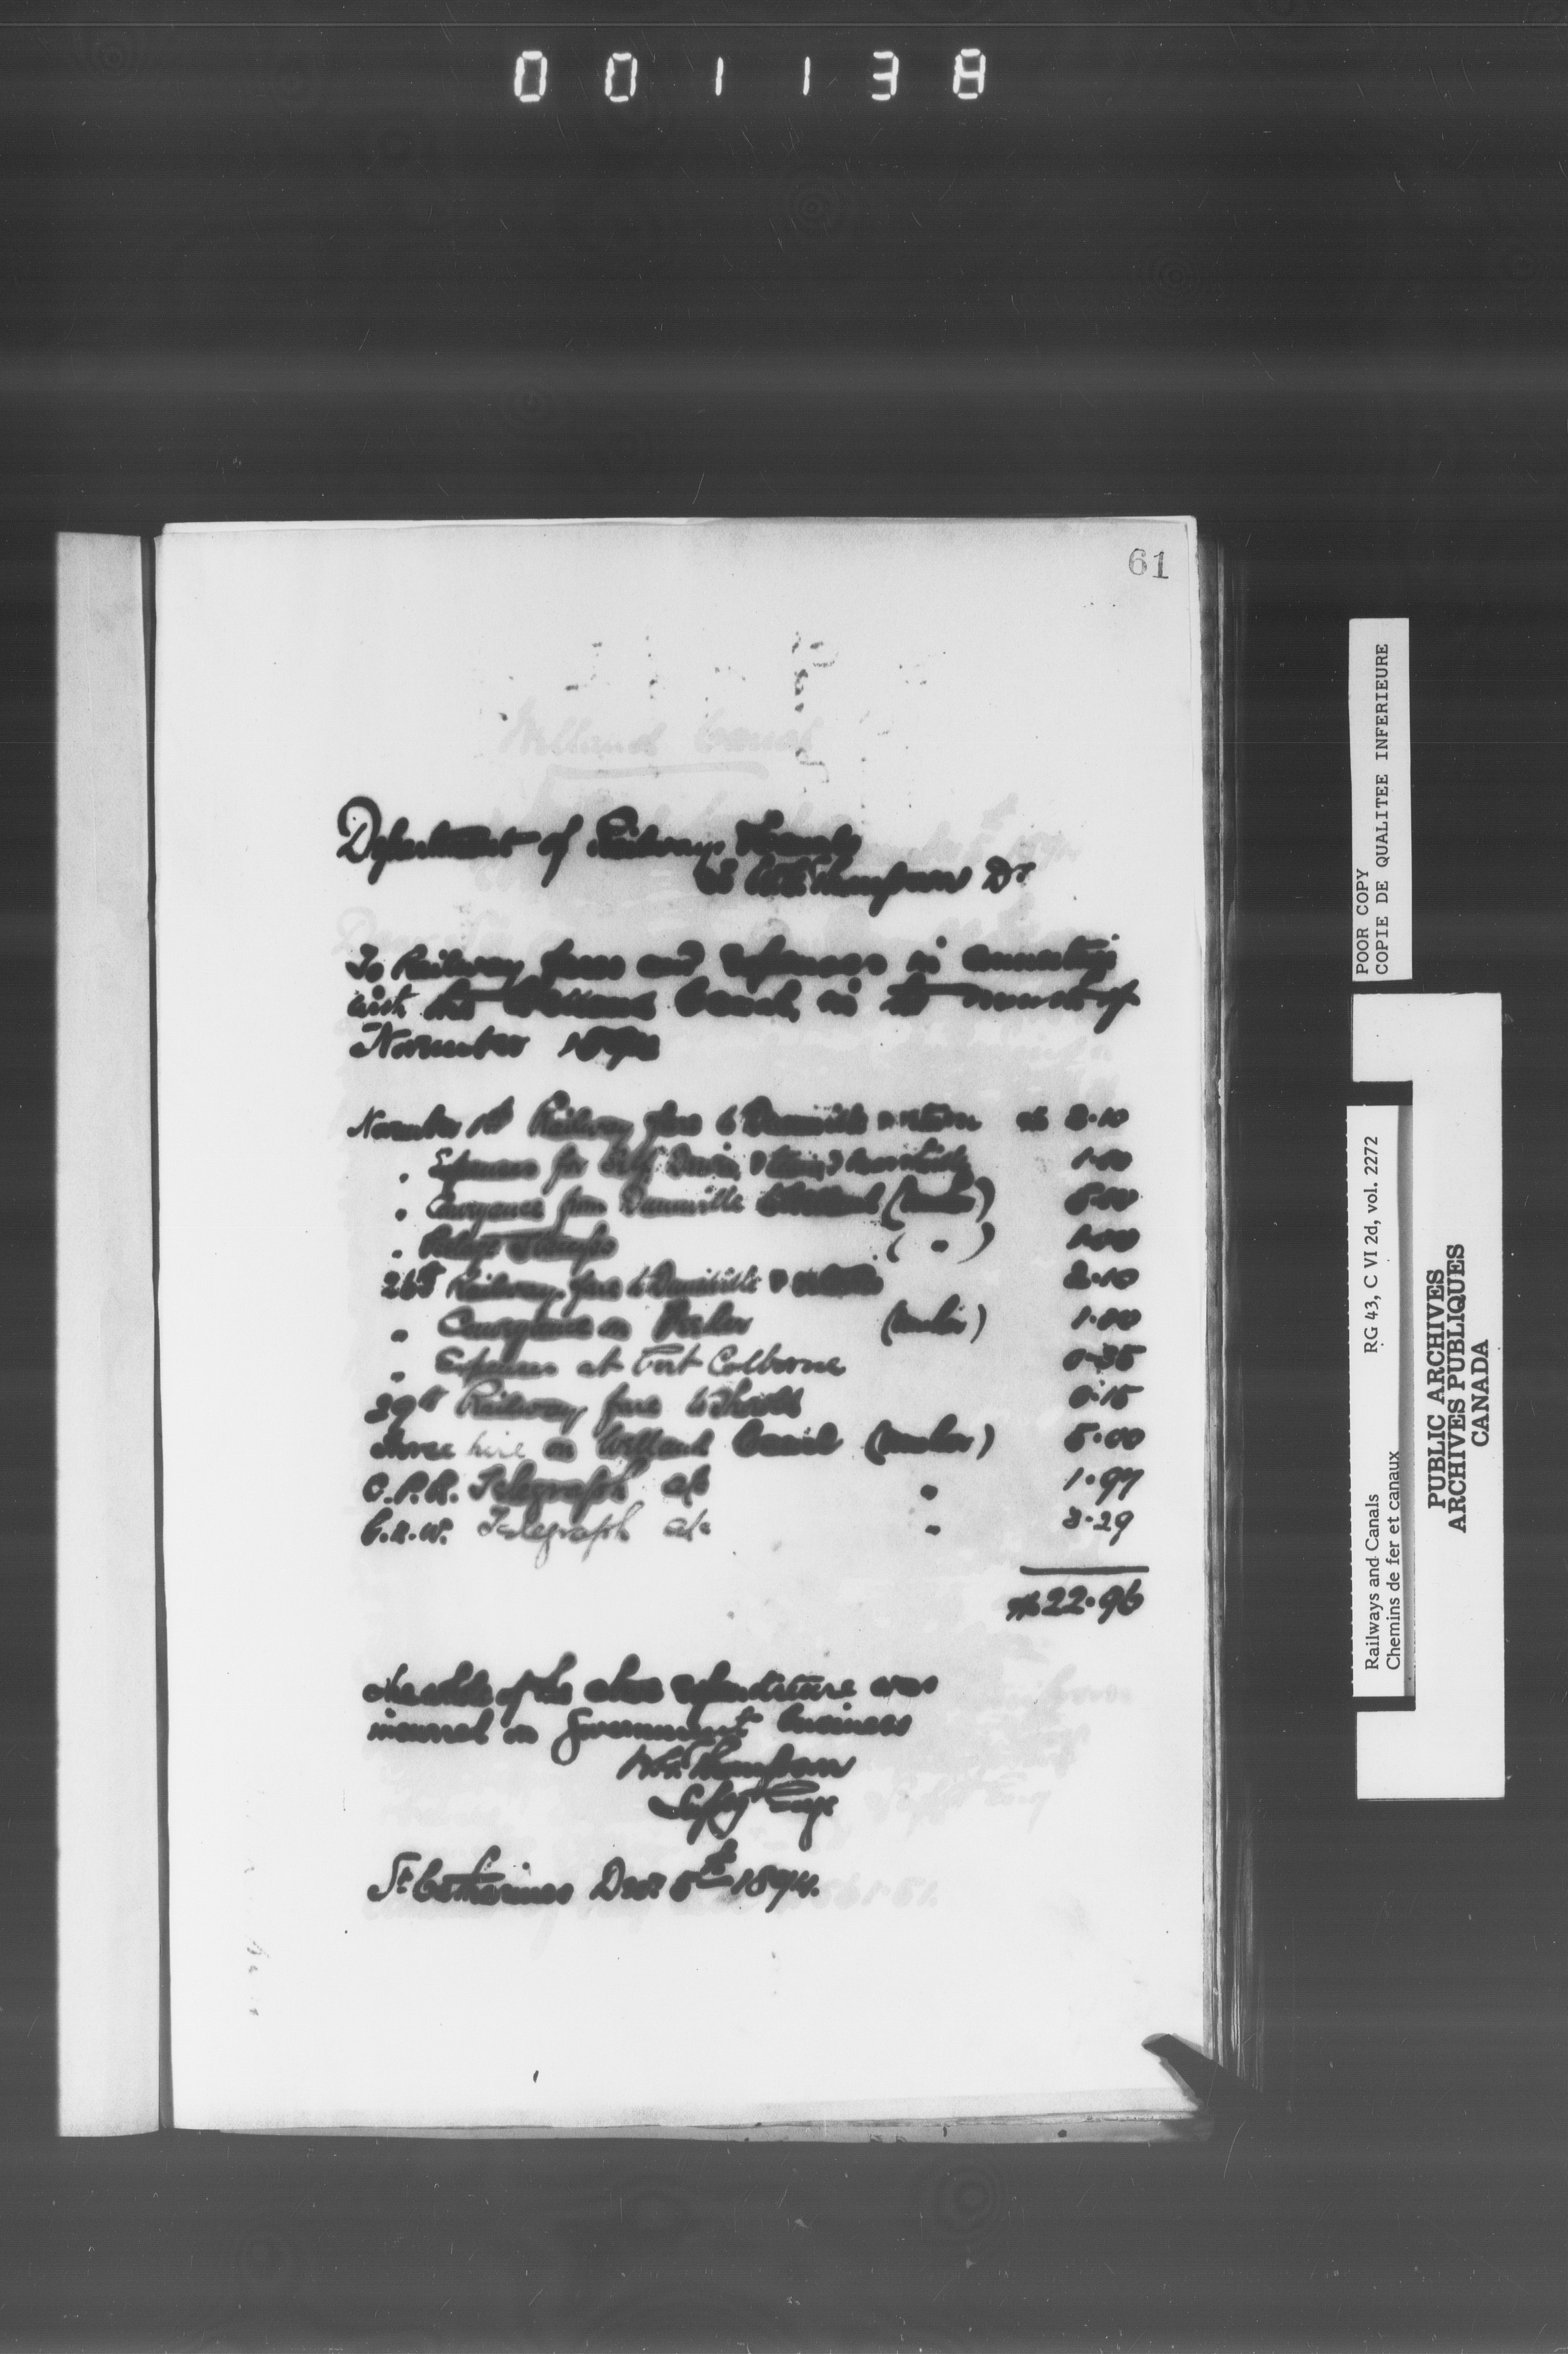 001138
61
Department of Railways & Canals
To W.G. Thompson Dr
To Railway fares and expenses in connection
with the Welland Canal, in the month of
November 1894
November Railway fare to Dunnville & return $ 2.10
" Expenses for self 1.00
" Conveyance from Dunnville to Welland (voucher) 5.00
" Postage Stamps ( " ) 1.00
26th Railway fare to Dunnville & return 2.10
" Conveyance on (voucher) 1.00
" Expenses at Port Colborne 0.35
29th Railway fare to Thorold 0.15
Horse hire on Welland Canal (voucher) 5.00
C.P.R. Telegraph a/c " 1.97
G.N.W. Telegraph a/c " 3.29
$ 22.96
The whole of the above expenditure was
incurred on Government business
W.G. Thompson
Supt'g Engr
St Catharines Decr 5th 1894.
POOR COPY
COPIE DE QUALITEE INFERIEURE
Railways and Canals RG 43, C VI 2d, vol. 2272
Chemins de fer et canaux
PUBLIC ARCHIVES
ARCHIVES PUBLIQUES
CANADA